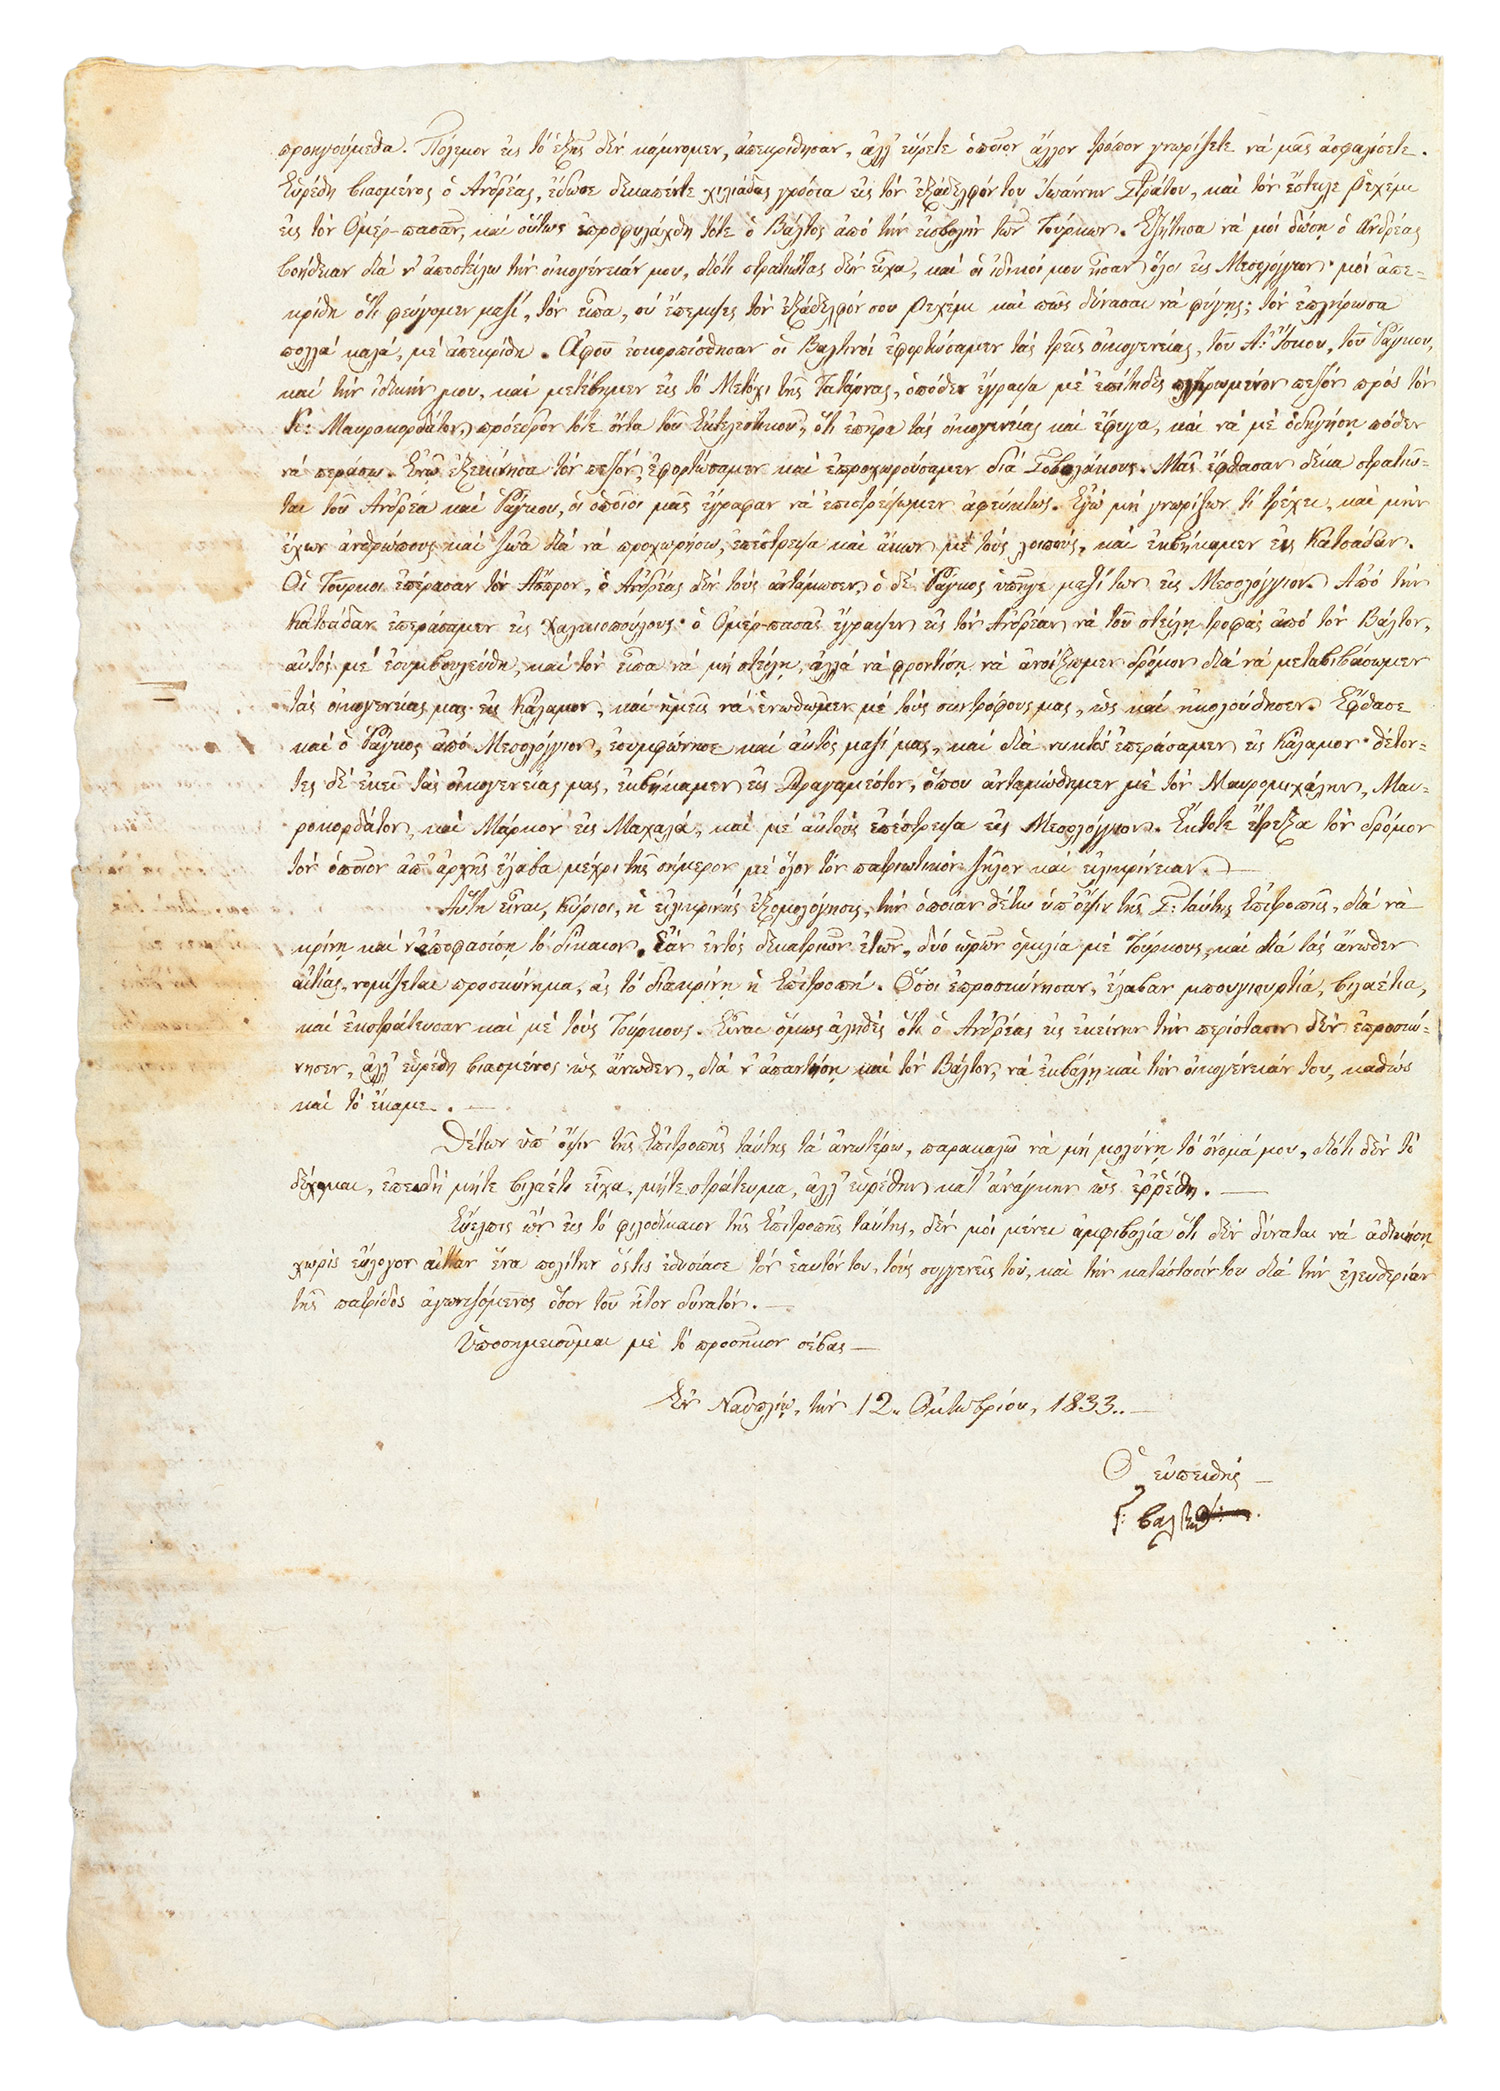 προηγούμεθα. Πόλεμον εἰς τὸ ἑξῆς δὲν κάμνομεν, ἀπεκρίθησαν, ἀλλ' εὕρετε ὁποῖον ἄλλον τρόπον γνωρίζετε νὰ μᾶς ἀσφαλίσετε.
Εὑρέθη βιασμένος ὁ Ἀνδρέας, ἔδωσε δεκαπέντε χιλιάδας γρόσια εἰς τὸν ἐξάδελφόν του Ἰωάννην Στράτου, καὶ τὸν ἔστειλε ῥεχέμι
εἰς τὸν Ὀμέρ-πασᾶν, καὶ οὕτως ἐπροφυλάχθη τότε ὁ Βάλτος ἀπὸ τὴν εἰσβολὴν τῶν Τούρκων. Ἐζήτησα νὰ μοὶ δώσῃ ὁ Ἀνδρέας
βοήθειαν διὰ ν' ἀποστείλω τὴν οἰκογένειάν μου, διότι στρατιώτας δὲν εἶχα, καὶ οἱ ἰδικοί μου ἦσαν ὅλοι εἰς Μεσολόγγιον· μοὶ ἀπε-
κρίθη ὅτι φεύγομεν μαζί, τὸν εἶπα, σὺ ἔπεμψες τὸν ἐξάδελφόν σου ῥεχέμι καὶ πῶς δύνασαι νὰ φύγῃς; τὸν ἐπλήρωσα
πολλὰ καλά, μὲ ἀπεκρίθη. Ἀφοῦ ἐσκορπίσθησαν οἱ Βαλτινοὶ ἐφορτώσαμεν τὰς τρεῖς οἰκογενείας, τοῦ Α: Ἴσκου, τοῦ Ῥάγκου,
καὶ τὴν ἰδικήν μου, καὶ μετέβημεν εἰς τὸ Μετόχι τῆς Τατάρνας, ὁπόθεν ἔγραψα μὲ ἐπίτηδες πληρωμένον πεζὸν πρὸς τὸν
Κ: Μαυροκορδάτον, πρόεδρον τότε ὄντα τοῦ Ἐκτελεστικοῦ, ὅτι ἐπῆρα τὰς οἰκογενείας καὶ ἔφυγα, καὶ νὰ μὲ ὁδηγήσῃ πόθεν
νὰ περάσω. Ἐνῷ ἐξεκίνησα τὸν πεζόν, ἐφορτώσαμεν καὶ ἐπροχωρούσαμεν διὰ Σοβολάκους. Μᾶς ἔφθασαν δέκα στρατιῶ-
ται τοῦ Ἀνδρέα καὶ Ῥάγκου, οἱ ὁποῖοι μᾶς ἔγραφαν νὰ ἐπιστρέψωμεν ἀφεύκτως. Ἐγὼ μὴ γνωρίζων τί τρέχει, καὶ μὴν
ἔχων ἀνθρώπους καὶ ζῶα διὰ νὰ προχωρήσω, ἐπέστρεψα καὶ ἄκων μὲ τοὺς λοιπούς, καὶ ἐκβήκαμεν εἰς Κατσάδαν.
Οἱ Τοῦρκοι ἐπέρασαν τὸν Ἄσπρον, ὁ Ἀνδρέας δὲν τοὺς ἀντάμωσεν, ὁ δὲ Ῥάγκος ὑπῆγε μαζί των εἰς Μεσολόγγιον. Ἀπὸ τὴν
Κατσάδαν ἐπεράσαμεν εἰς Χαλκιοπούλους· ὁ Ὀμέρ-πασᾶς ἔγραψεν εἰς τὸν Ἀνδρέαν νὰ τοῦ στείλῃ τροφὰς ἀπὸ τὸν Βάλτον,
αὐτὸς μὲ ἐσυμβουλεύθη, καὶ τὸν εἶπα νὰ μὴ στείλῃ, ἀλλὰ νὰ φροντίσῃ νὰ ἀνοίξωμεν δρόμον διὰ νὰ μεταβιβάσωμεν
τὰς οἰκογενείας μας εἰς Κάλαμον, καὶ ἡμεῖς νὰ ἑνωθῶμεν μὲ τοὺς συντρόφους μας, ὡς καὶ ἠκολούθησεν. Ἔφθασε
καὶ ὁ Ῥάγκος ἀπὸ Μεσολόγγιον, ἐσυμφώνησε καὶ αὐτὸς μαζί μας, καὶ διὰ νυκτὸς ἐπεράσαμεν εἰς Κάλαμον· θέτον-
τες δὲ ἐκεῖ τὰς οἰκογενείας μας, ἐκβήκαμεν εἰς Δραγαμέστον, ὅπου ἀνταμώθημεν μὲ τὸν Μαυρομιχάλην, Μαυ-
ροκορδάτον, καὶ Μάρκον εἰς Μαχαλᾶ, καὶ μὲ αὐτοὺς ἐπέστρεψα εἰς Μεσολόγγιον. Ἔκτοτε ἔτρεξα τὸν δρόμον
τὸν ὁποῖον ἀπ' ἀρχῆς ἔλαβα μέχρι τῆς σήμερον μὲ ὅλον τὸν πατριωτικὸν ζῆλον καὶ εἰλικρίνειαν. —
Αὕτη εἶναι, Κύριοι, ἡ εἰλικρινὴς ἐξομολόγησις, τὴν ὁποίαν θέτω ὑπ' ὄψιν τῆς Σ: ταύτης Ἐπιτροπῆς, διὰ νὰ
κρίνῃ καὶ ν' ἀποφασίσῃ τὸ δίκαιον. Ἐὰν ἐντὸς δεκατριῶν ἐτῶν, δύο ὡρῶν ὁμιλία μὲ Τούρκους, καὶ διὰ τὰς ἄνωθεν
αἰτίας, νομίζεται προσκύνημα, ἂς τὸ διακρίνῃ ἡ Ἐπιτροπή. Ὅσοι ἐπροσκύνησαν, ἔλαβαν μπουγιουρτιά, βιλαέτια,
καὶ ἐκστράτευσαν καὶ μὲ τοὺς Τούρκους. Εἶναι ὅμως ἀληθὲς ὅτι ὁ Ἀνδρέας εἰς ἐκείνην τὴν περίστασιν δὲν ἐπροσκύ-
νησεν, ἀλλ' εὑρέθη βιασμένος ὡς ἄνωθεν, διὰ ν' ἀπαντήσῃ καὶ τὸν Βάλτον, νὰ ἐκβάλῃ καὶ τὴν οἰκογένειάν του, καθὼς
καὶ τὸ ἔκαμε. —
Θέτων ὑπ' ὄψιν τῆς Ἐπιτροπῆς ταύτης τὰ ἀνωτέρω, παρακαλῶ νὰ μὴ μολύνῃ τὸ ὄνομά μου, διότι δὲν τὸ
δέχομαι, ἐπειδὴ μήτε βιλαέτι εἶχα, μήτε στράτευμα, ἀλλ' εὑρέθην κατ' ἀνάγκην ὡς ἐρρέθη. —
Εὔελπις ὢν εἰς τὸ φιλοδίκαιον τῆς Ἐπιτροπῆς ταύτης, δὲν μοὶ μένει ἀμφιβολία ὅτι δὲν δύναται νὰ ἀδικήσῃ
χωρὶς εὔλογον αἰτίαν ἕνα πολίτην ὅστις ἐθυσίασε τὸν ἑαυτόν του, τοὺς συγγενεῖς του, καὶ τὴν κατάστασίν του διὰ τὴν ἐλευθερίαν
τῆς πατρίδος ἀγωνιζόμενος ὅσον τοῦ ἦτον δυνατόν. —
Ὑποσημειοῦμαι μὲ τὸ προσῆκον σέβας —
Ἐν Ναυπλίῳ, τὴν 12. Ὀκτωβρίου, 1833. —
Ὁ εὐπειθής —
Γ: βαλτινός